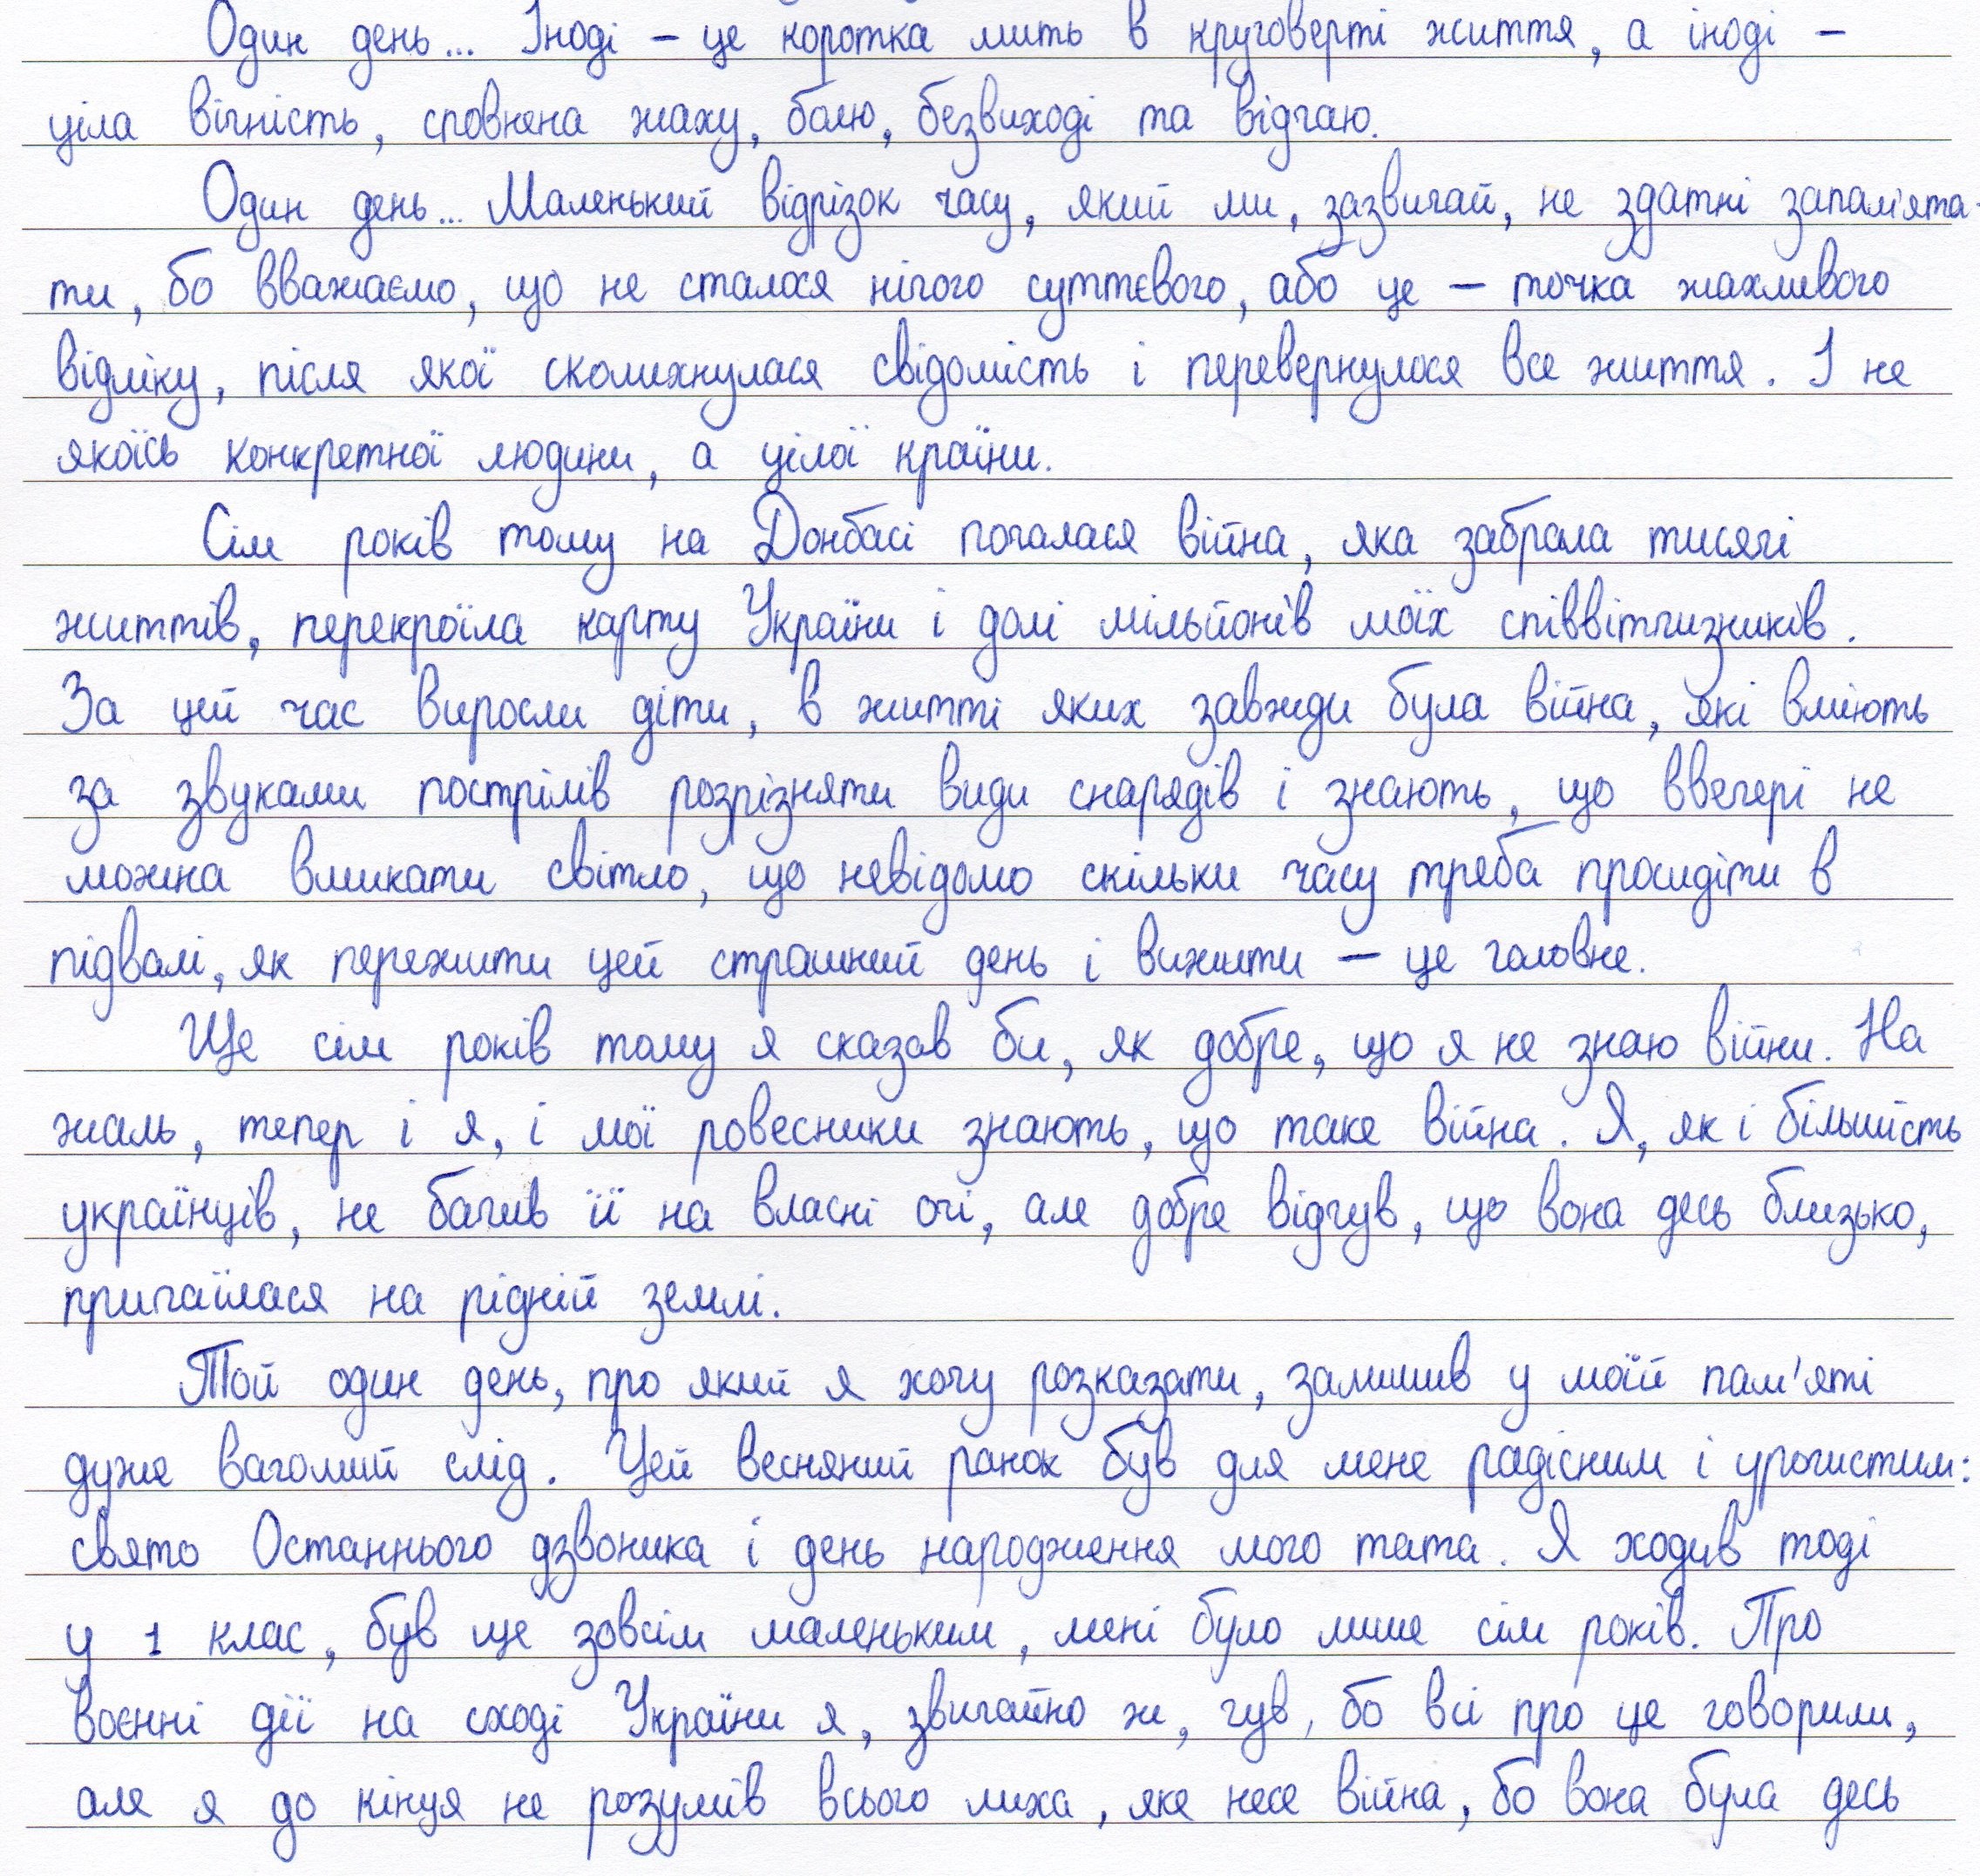 Один день... Іноді – це коротка мить в круговерті життя, а іноді –
ціла вічність, сповнена жаху, болю, безвиході та відчаю.
Один день... Маленький відрізок часу, який ми, зазвичай, не здатні запам'ята-
ти, бо вважаємо, що не сталося нічого суттєвого, або це – точка жахливого
відліку, після якої сколихнулася свідомість і перевернулося все життя. І не
якоїсь конкретної людини, а цілої країни.
Сім років тому на Донбасі почалася війна, яка забрала тисячі
життів, перекроїла карту України і долі мільйонів моїх співвітчизників.
За цей час виросли діти, в житті яких завжди була війна, які вміють
за звуками пострілів розрізняти види снарядів і знають, що ввечері не
можна вмикати світло, що невідомо скільки часу треба просидіти в
підвалі, як пережити цей страшний день і вижити – це головне.
Ще сім років тому я сказав би, як добре, що я не знаю війни. На
жаль, тепер і я, і мої ровесники знають, що таке війна. Я, як і більшість
українців, не бачив її на власні очі, але добре відчув, що вона десь близько,
причаїлася на рідній землі.
Той один день, про який я хочу розказати, залишив у моїй пам'яті
дуже вагомий слід. Цей весняний ранок був для мене радісним і урочистим:
свято Останнього дзвоника і день народження мого тата. Я ходив тоді
у 1 клас, був ще зовсім маленьким, мені було лише сім років. Про
воєнні дії на сході України я, звичайно ж, чув, бо всі про це говорили,
але я до кінця не розумів всього лиха, яке несе війна, бо вона була десь